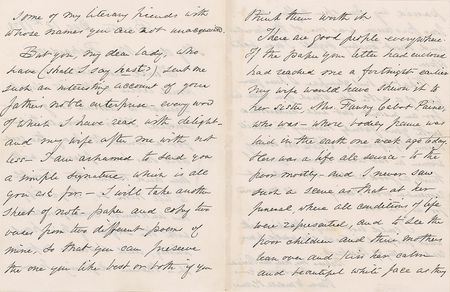 some of my literary friends with
whose names you are not unacquainted.
But you, my dear lady, who
have (shall I say hast?) sent me
such an interesting account of your
father's noble enterprise - every word
of which I have read with delight
and my wife after me with not
less - I am ashamed to send you
a simple signature, which is all
you ask for. - I will take another
sheet of note-paper and copy two
verses from two different poems of
mine, so that you can preserve
the one you like best or both if you
think them worth it.
There are good people everywhere.
If the paper your letter had enclosed
had reached one a fortnight earlier
my wife would have shown it to
her sister, Mrs. Fanny Cabot Paine,
who was - whose bodily frame was
laid in the earth one week ago today.
Hers was a life all service - to the
poor mostly - and I never saw
such a scene as that at her
funeral, where all conditions of life
were represented, and to see the
poor children and their mothers
lean over and kiss her calm
and beautiful white face as they